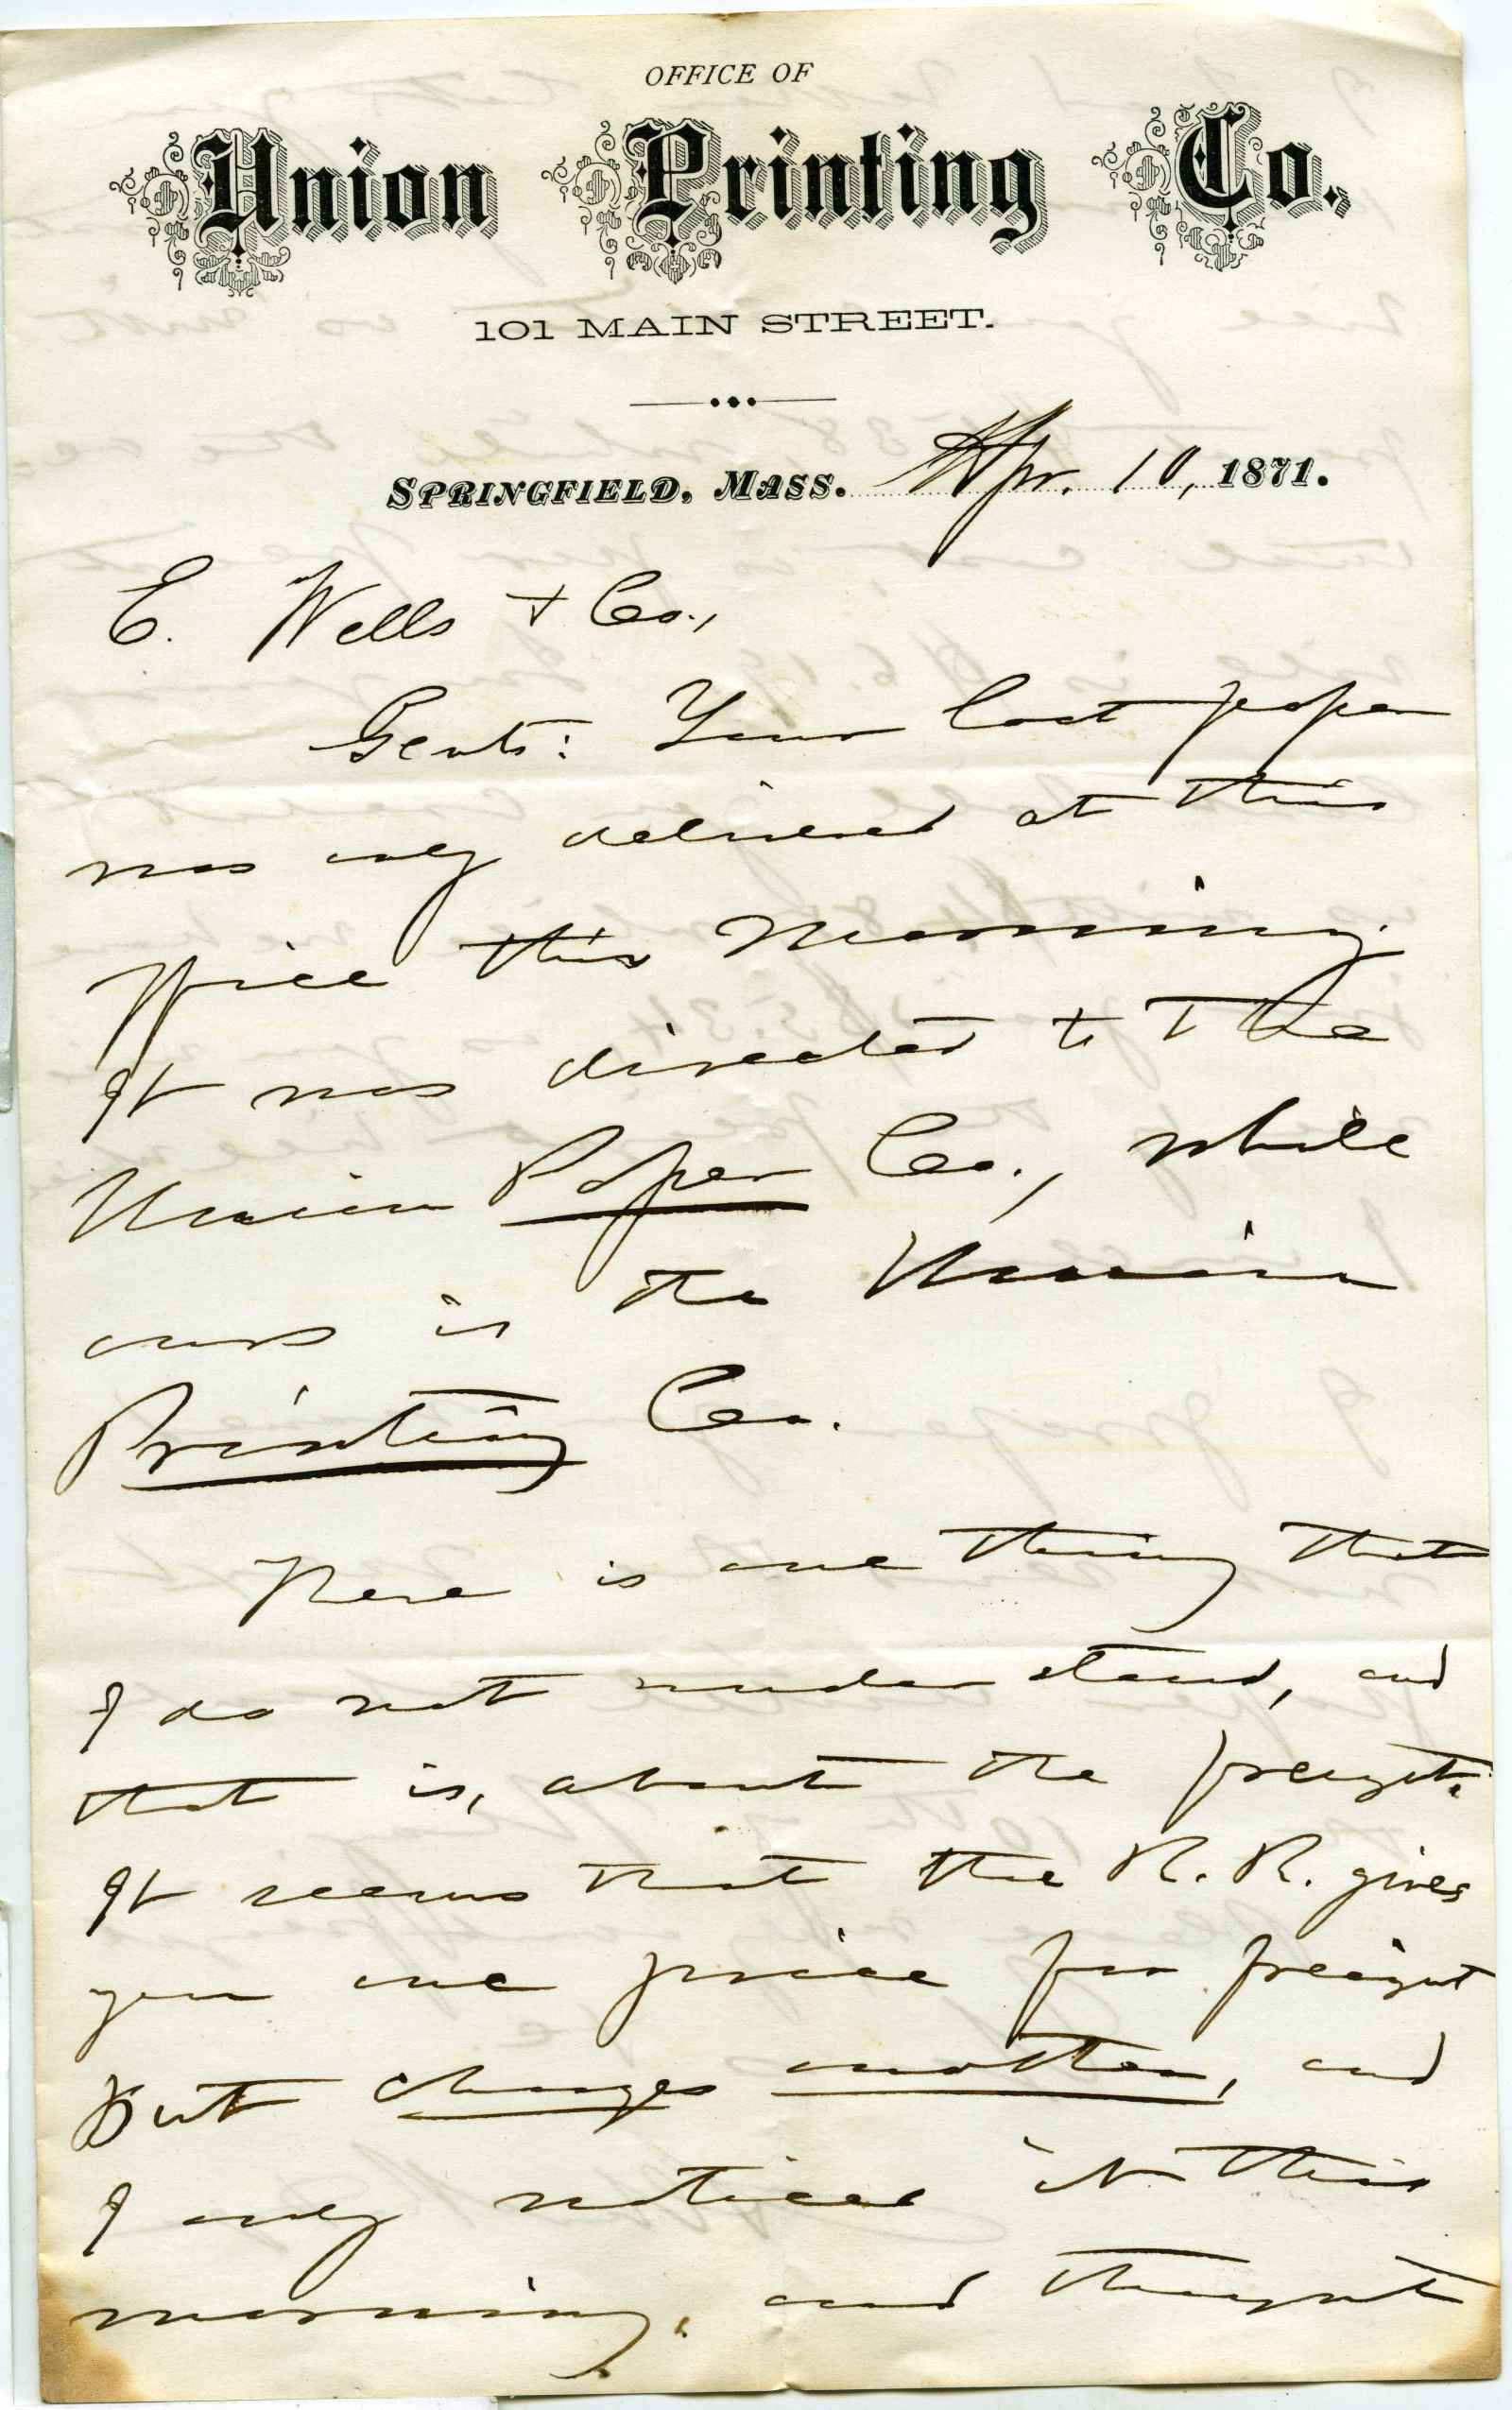 OFFICE OF
Union Printing Co.,
101 MAIN STREET.
SPRINGFIELD, MASS. Apr. 10, 1871.
E. Wells & Co.,
Gents: Your last paper
was only delivered at this
office this morning.
It was directed to The
Union Paper Co., while
ours is the Union
Printing Co.
There is one thing that
I do not understand, and
that is, about the freight.
It seems that the R. R. gives
you one price for freight
but charges another, and
I only noticed it this
morning, and thought